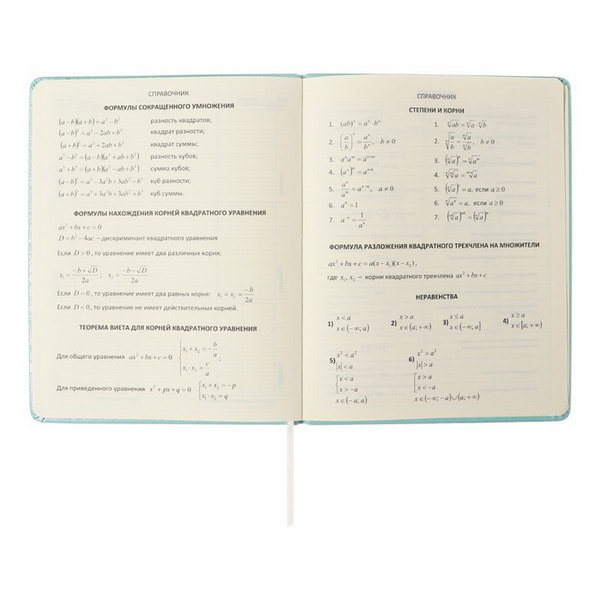 СПРАВОЧНИК
ФОРМУЛЫ СОКРАЩЕННОГО УМНОЖЕНИЯ
(a−b)(a+b)=a²−b² разность квадратов,
(a−b)²=a²−2ab+b² квадрат разности;
(a+b)²=a²+2ab+b² квадрат суммы;
a³−b³=(a−b)(a²+ab+b²) разность кубов;
a³+b³=(a+b)(a²−ab+b²) сумма кубов;
(a−b)³=a³−3a²b+3ab²−b³ куб разности;
(a+b)³=a³+3a²b+3ab²+b³ куб суммы.
ФОРМУЛЫ НАХОЖДЕНИЯ КОРНЕЙ КВАДРАТНОГО УРАВНЕНИЯ
ax²+bx+c=0
D=b²−4ac − дискриминант квадратного уравнения
Если D>0, то уравнение имеет два различных корня:
x₁=(−b+√D)/2a; x₂=(−b−√D)/2a
Если D=0, то уравнение имеет два равных корня: x₁=x₂=−b/2a
Если D<0, то уравнение не имеет действительных корней.
ТЕОРЕМА ВИЕТА ДЛЯ КОРНЕЙ КВАДРАТНОГО УРАВНЕНИЯ
Для общего уравнения ax²+bx+c=0 {x₁+x₂=−b/a
x₁·x₂=c/a;
Для приведенного уравнения x²+px+q=0 {x₁+x₂=−p
x₁·x₂=q
СПРАВОЧНИК
СТЕПЕНИ И КОРНИ
1. (ab)ⁿ=aⁿ·bⁿ
2. (a/b)ⁿ=aⁿ/bⁿ, b≠0
3. aⁿaᵐ=aⁿ⁺ᵐ
4. (aⁿ)ᵐ=aⁿᵐ
5. aⁿ/aᵐ=aⁿ⁻ᵐ, a≠0
6. a⁰=1
7. a⁻ⁿ=1/aⁿ
1. ⁿ√ab=ⁿ√a·ⁿ√b
2. ⁿ√(a/b)=ⁿ√a/ⁿ√b, b≠0
3. (ⁿ√a)ᵐ=ⁿ√aᵐ
5. (ⁿ√a)ⁿ=a, если a≥0
6. ⁿ√aⁿ=a, если a≥0
ФОРМУЛА РАЗЛОЖЕНИЯ КВАДРАТНОГО ТРЕХЧЛЕНА НА МНОЖИТЕЛИ
ax²+bx+c=a(x−x₁)(x−x₂),
где x₁,x₂ − корни квадратного трехчлена ax²+bx+c
НЕРАВЕНСТВА
1) x<a
x∈(−∞;a)
2) x>a
x∈(a;+∞)
3) x≤a
x∈(−∞;a]
4) x≥a
x∈[a;+∞)
5) x²<a²
|x|<a
{x<a
x>−a
x∈(−a;a)
6) x²>a²
|x|>a
[x>a
x<−a
x∈(−∞;−a)∪(a;+∞)